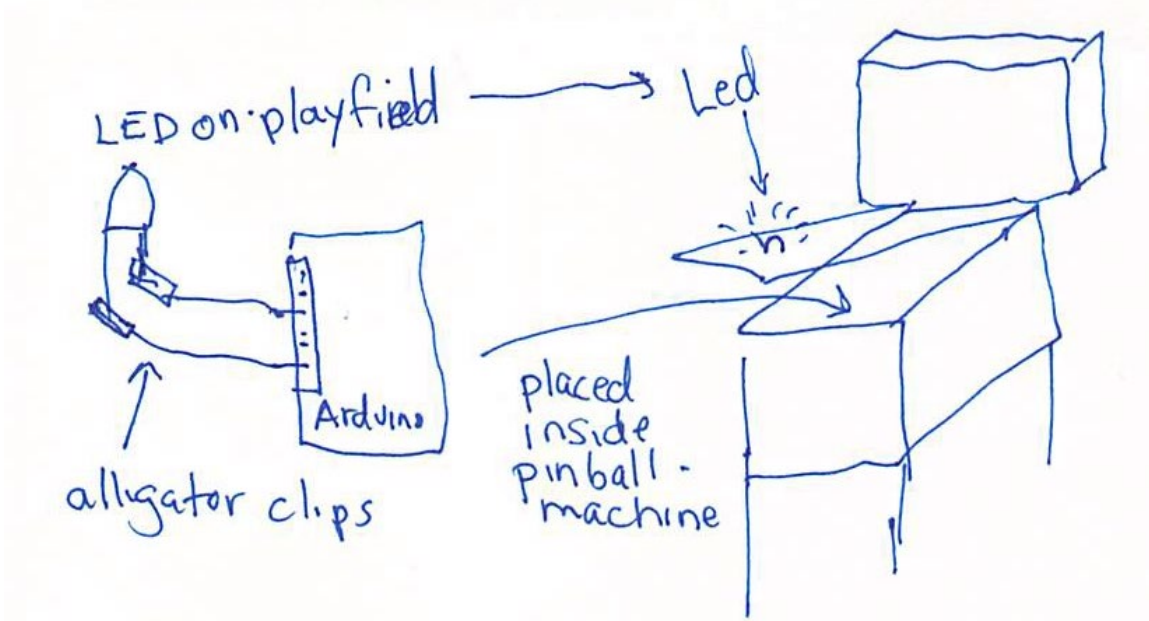 LED on playfield
Led
Arduino
alligator clips
placed
inside
pinball-
machine